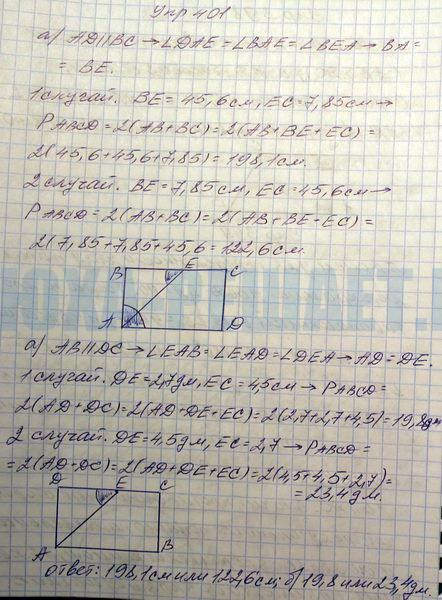 Упр 401
а) AD||BC → ∠DAE = ∠BAE = ∠BEA → BA =
= BE.
1 случай. BE = 45,6 см, EC = 7,85 см →
PABCD = 2(AB+BC) = 2(AB+BE+EC) =
2(45,6+45,6+7,85) = 198,1 см.
2 случай. BE = 7,85 см, EC = 45,6 см →
PABCD = 2(AB+BC) = 2(AB+BE+EC) =
2(7,85+7,85+45,6 = 122,6 см.
B E C
A D
а) AB||DC → ∠EAB = ∠EAD = ∠DEA → AD = DE.
1 случай. DE = 2,7 дм, EC = 4,5 см → PABCD =
2(AD+DC) = 2(AD+DE+EC) = 2(2,7+2,7+4,5) = 19,8 дм
2 случай. DE = 4.5 дм, EC = 2,7 → PABCD =
= 2(AD+DC) = 2(AD+DE+EC) = 2(4,5+4,5+2,7) =
= 23,4 дм.
D E C
A B
ответ: 198,1 см или 122,6 см; б) 19,8 или 23,4 дм.